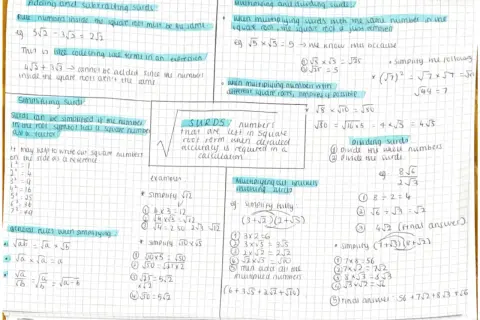 Adding and subtracting surds
Rule: numbers inside the square root must be the same
eg. 5√3 - 3√3 = 2√3
This is like collecting like terms in an expression
4√2 + 3√3 → cannot be added since the numbers
inside the square roots aren't the same
Simplifying Surds
Surds can be simplified if the number
in the root symbol has a square number
as a factor
It may help to write out square numbers
on the side as a reference
1² = 1
2² = 4
3² = 9
4² = 16
5² = 25
6² = 36
7² = 49
general rules when simplifying
√ab = √a × √b
√a × √a = a
example:
• simplify √12
① 4 × 3 = 12
SURDS numbers
that are left in square
root form when detailed
accuracy is required in a
calculation
Multiplying and dividing surds
when multiplying surds with the same number in the
square root, the square root is just removed
eg √5 × √5 = 5 → we know this because
① √5 × √5 = √25
② √25 = 5
• simplify the following
* (√7)² = √7 × √7 = √49
√49 = 7
when multiplying numbers with
different square roots, simplify if possible
Dividing surds
① divide the whole numbers
② divide the surds
eg. 8√6
2√3
① 8 ÷ 2 = 4
② √6 ÷ √3 = √2
③ 4√2 (final answer)
Multiplying out brackets
involving surds
eg. simplify fully
(3+√2)(2+√5)
① 3×2 = 6
② 3×√5 = 3√5
③ 2×√2 = 2√2
④ √2×√5 = √10
⑤ then add all the
multiplied numbers
(6 + 3√5 + 2√2 + √10)
• simplify (7+√3)(8+√2)
① 7×8 = 56
② 7×√2 = 7√2
③ 8×√3 = 8√3
④ √3×√2 = √6
⑤ final answer: 56 + 7√2 + 8√3 + √6